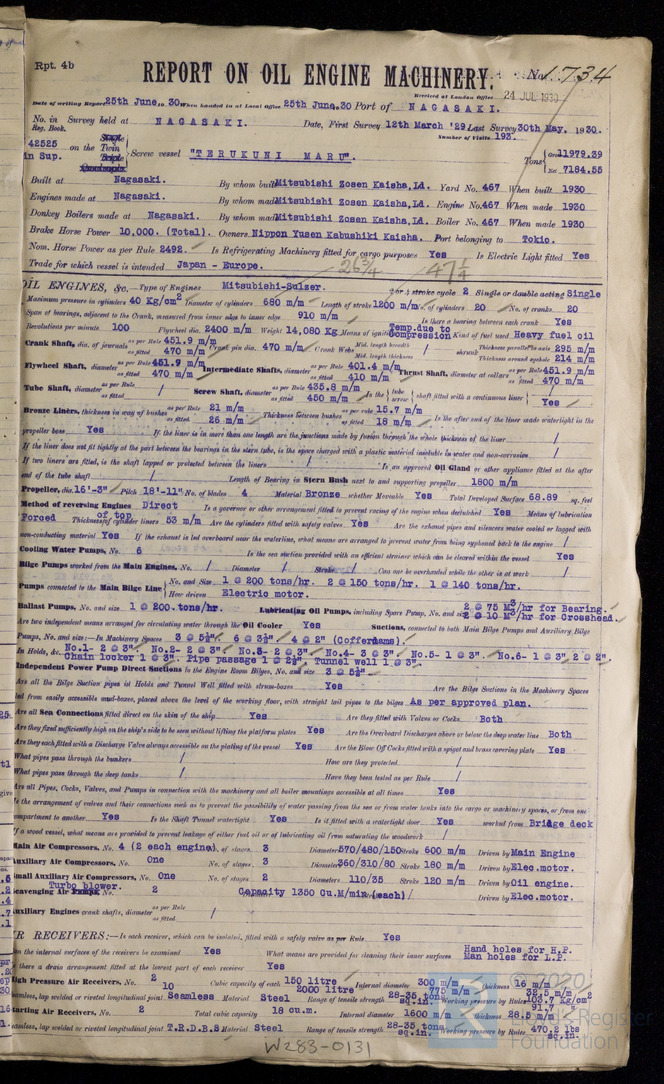 Rpt. 4b
REPORT ON OIL ENGINE MACHINERY.
No. 1734
Received at London Office 24 JUL 1930
Date of writing Report 25th June, 19 30. When handed in at Local Office 25th June, 30 Port of NAGASAKI.
No. in Survey held at NAGASAKI. Date, First Survey 12th March '29 Last Survey 30th May. 1930.
Reg. Book. Number of Visits 193.
42525 in Sup. on the Single Twin Triple Quadruple Screw vessel "TERUKUNI MARU". Tons Gross 11979.39 Net 7184.55
Built at Nagasaki. By whom built Mitsubishi Zosen Kaisha, Ld. Yard No. 467 When built 1930
Engines made at Nagasaki. By whom made Mitsubishi Zosen Kaisha, Ld. Engine No. 467 When made 1930
Donkey Boilers made at Nagasaki. By whom made Mitsubishi Zosen Kaisha, Ld. Boiler No. 467 When made 1930
Brake Horse Power 10,000. (Total). Owners Nippon Yusen Kabushiki Kaisha. Port belonging to Tokio.
Nom. Horse Power as per Rule 2492. Is Refrigerating Machinery fitted for cargo purposes Yes Is Electric Light fitted Yes
Trade for which vessel is intended Japan - Europe. 26¾ 47¼
OIL ENGINES, &c. — Type of Engines Mitsubishi-Sulzer. 2 or 4 stroke cycle 2 Single or double acting Single
Maximum pressure in cylinders 40 Kg/cm² Diameter of cylinders 680 m/m Length of stroke 1200 m/m No. of cylinders 20 No. of cranks 20
Span of bearings, adjacent to the Crank, measured from inner edge to inner edge 910 m/m Is there a bearing between each crank Yes
Revolutions per minute 100 Flywheel dia. 2400 m/m Weight 14,080 Kg Means of ignition Temp. due to Compression Kind of fuel used Heavy fuel oil
Crank Shaft, dia. of journals as per Rule 451.9 m/m as fitted 470 m/m Crank pin dia. 470 m/m Crank Webs Mid. length breadth / Mid. length thickness / shrunk Thickness parallel to axis 295 m/m Thickness around eyehole 214 m/m
Flywheel Shaft, diameter as per Rule 451.9 m/m as fitted 470 m/m Intermediate Shafts, diameter as per Rule 401.4 m/m as fitted 410 m/m Thrust Shaft, diameter at collars as per Rule 451.9 m/m as fitted 470 m/m
Tube Shaft, diameter as per Rule / as fitted Screw Shaft, diameter as per Rule 435.8 m/m as fitted 450 m/m Is the tube screw shaft fitted with a continuous liner / Yes
Bronze Liners, thickness in way of bushes as per Rule 21 m/m as fitted 26 m/m Thickness between bushes as per rule 15.7 m/m as fitted 18 m/m Is the after end of the liner made watertight in the
propeller boss Yes If the liner is in more than one length are the junctions made by fusion through the whole thickness of the liner /
If the liner does not fit tightly at the part between the bearings in the stern tube, is the space charged with a plastic material insoluble in water and non-corrosive /
If two liners are fitted, is the shaft lapped or protected between the liners / Is an approved Oil Gland or other appliance fitted at the after
end of the tube shaft / Length of Bearing in Stern Bush next to and supporting propeller 1800 m/m
Propeller, dia. 16'-3" Pitch 18'-11" No. of blades 4 Material Bronze whether Movable Yes Total Developed Surface 68.89 sq. feet
Method of reversing Engines Direct Is a governor or other arrangement fitted to prevent racing of the engine when declutched Yes Means of lubrication
Forced Thickness of top of cylinder liners 53 m/m Are the cylinders fitted with safety valves Yes Are the exhaust pipes and silencers water cooled or lagged with
non-conducting material Yes If the exhaust is led overboard near the waterline, what means are arranged to prevent water from being syphoned back to the engine /
Cooling Water Pumps, No. 6 Is the sea suction provided with an efficient strainer which can be cleared within the vessel Yes
Bilge Pumps worked from the Main Engines, No. / Diameter / Stroke / Can one be overhauled while the other is at work /
Pumps connected to the Main Bilge Line No. and Size 1 @ 200 tons/hr. 2 @ 150 tons/hr. 1 @ 140 tons/hr.
How driven Electric motor.
Ballast Pumps, No. and size 1 @ 200 tons/hr. Lubricating Oil Pumps, including Spare Pump, No. and size 2 @ 75 M³/hr for Bearing. 2 @ 10 M³/hr for Crosshead.
Are two independent means arranged for circulating water through the Oil Cooler Yes Suctions, connected to both Main Bilge Pumps and Auxiliary Bilge
Pumps, No. and size:—In Machinery Spaces 3 @ 5½". 6 @ 3½" 4 @ 2" (Cofferdams).
In Holds, &c. No.1- 2 @ 3" No.2- 2 @ 3" No.3- 2 @ 3" No.4- 3 @ 3" No.5- 1 @ 3". No.6- 1 @ 3", 2 @ 2"
Chain locker 1 @ 3". Pipe passage 1 @ 2½", Tunnel well 1 @ 3".
Independent Power Pump Direct Suctions to the Engine Room Bilges, No. and size 3 @ 5½"
Are all the Bilge Suction pipes in Holds and Tunnel Well fitted with strum-boxes Yes Are the Bilge Suctions in the Machinery Spaces
led from easily accessible mud-boxes, placed above the level of the working floor, with straight tail pipes to the bilges As per approved plan.
Are all Sea Connections fitted direct on the skin of the ship Yes Are they fitted with Valves or Cocks Both
Are they fixed sufficiently high on the ship's side to be seen without lifting the platform plates Yes Are the Overboard Discharges above or below the deep water line Both
Are they each fitted with a Discharge Valve always accessible on the plating of the vessel Yes Are the Blow Off Cocks fitted with a spigot and brass covering plate Yes
What pipes pass through the bunkers / How are they protected /
What pipes pass through the deep tanks / Have they been tested as per Rule /
Are all Pipes, Cocks, Valves, and Pumps in connection with the machinery and all boiler mountings accessible at all times Yes
Is the arrangement of valves and their connections such as to prevent the possibility of water passing from the sea or from water tanks into the cargo or machinery spaces, or from one
compartment to another Yes Is the Shaft Tunnel watertight Yes Is it fitted with a watertight door Yes worked from Bridge deck
If a wood vessel, what means are provided to prevent leakage of either fuel oil or of lubricating oil from saturating the woodwork /
Main Air Compressors, No. 4 (2 each engine) No. of stages 3 Diameters 570/480/150 Stroke 600 m/m Driven by Main Engine
Auxiliary Air Compressors, No. One No. of stages 3 Diameters 360/310/80 Stroke 180 m/m Driven by Elec.motor.
Small Auxiliary Air Compressors, No. One No. of stages 2 Diameters 110/35 Stroke 120 m/m Driven by Oil engine.
Scavenging Air Pumps, Turbo blower. No. 2 Capacity 1350 Cu.M/min (each) Driven by Elec.motor.
Auxiliary Engines crank shafts, diameter as per Rule as fitted /
AIR RECEIVERS:—Is each receiver, which can be isolated, fitted with a safety valve as per Rule Yes
Can the internal surfaces of the receivers be examined Yes What means are provided for cleaning their inner surfaces Hand holes for H.P. Man holes for L.P.
Is there a drain arrangement fitted at the lowest part of each receiver Yes
High Pressure Air Receivers, No. 2 10 Cubic capacity of each 150 litre 2000 litre Internal diameter 300 m/m 775 m/m thickness 16 m/m 32.5 m/m
Seamless, lap welded or riveted longitudinal joint Seamless Material Steel Range of tensile strength 28-35 tons sq.in. Working pressure by Rules 103.7 Kg/cm² 91.7
Starting Air Receivers, No. 2 Total cubic capacity 18 cu.m. Internal diameter 1600 m/m thickness 28.5 m/m
Seamless, lap welded or riveted longitudinal joint T.R.D.B.S. Material Steel Range of tensile strength 28-35 tons sq.in. Working pressure by Rules 470.2 lbs sq.in.
W283-0131
© 2020
Lloyd's Register
Foundation